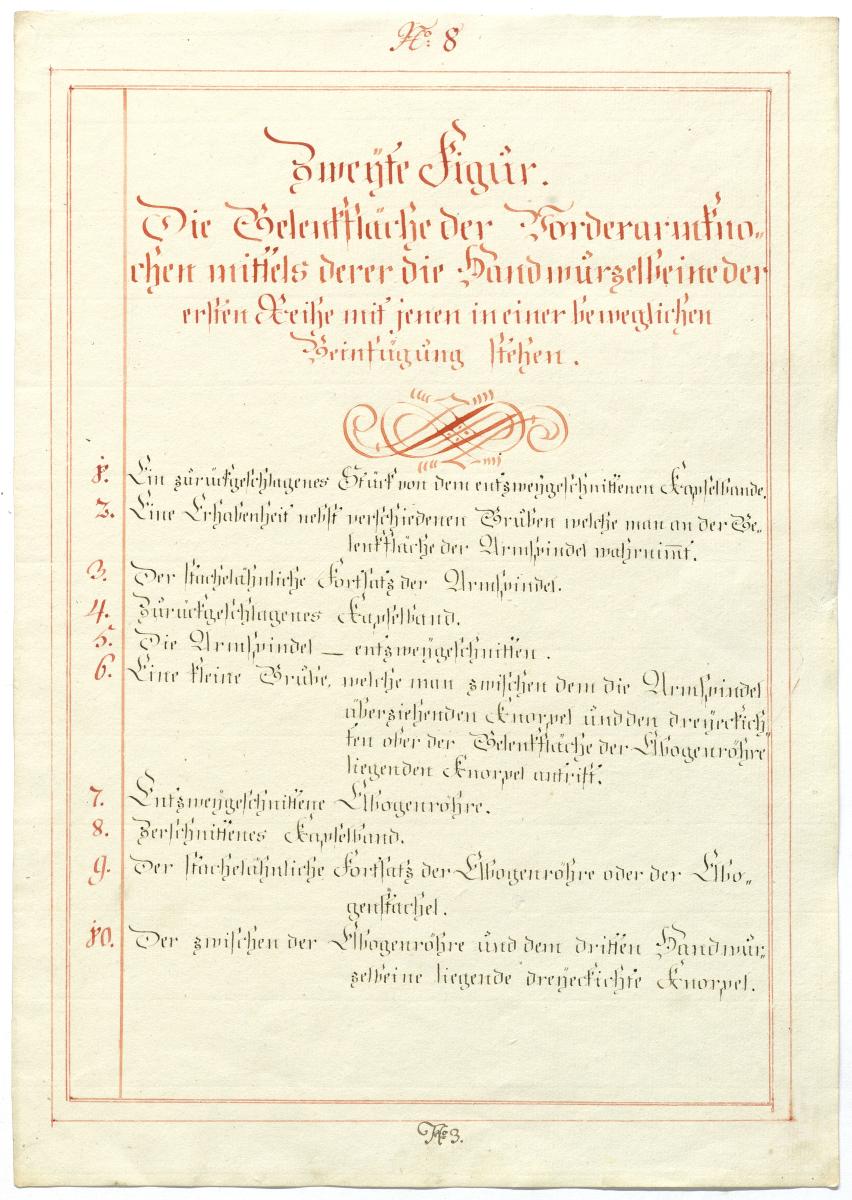 No: 8
Zweÿte Figur.
Die Gelenkfläche der Vorderarmkno-
chen mittels derer die Handwurzelbeine der
ersten Reihe mit jenen in einer beweglichen
Beinfügung stehen.
1. Ein zurückgeschlagenes Stück von dem entzweygeschnittenen Kapselbande.
2. Eine Erhabenheit nebst verschiedenen Gruben welche man an der Ge-
lenkfläche der Armspindel wahrnim̅t.
3. Der stachelähnliche Fortsatz der Armspindel.
4. Zurückgeschlagenes Kapselband.
5. Die Armspindel — entzweygeschnitten.
6. Eine kleine Grube, welche man zwischen dem die Armspindel
überziehenden Knorpel und den dreyeckich-
ten ober der Gelenkfläche der Elbogenröhre
liegenden Knorpel antrift.
7. Entzweÿgeschnittene Elbogenröhre.
8. Zerschnittenes Kapselband.
9. Der stachelähnliche Fortsatz der Elbogenröhre oder der Elbo-
genstachel.
10. Der zwischen der Elbogenröhre und dem dritten Handwur-
zelbeine liegende dreyeckichte Knorpel.
No 3.